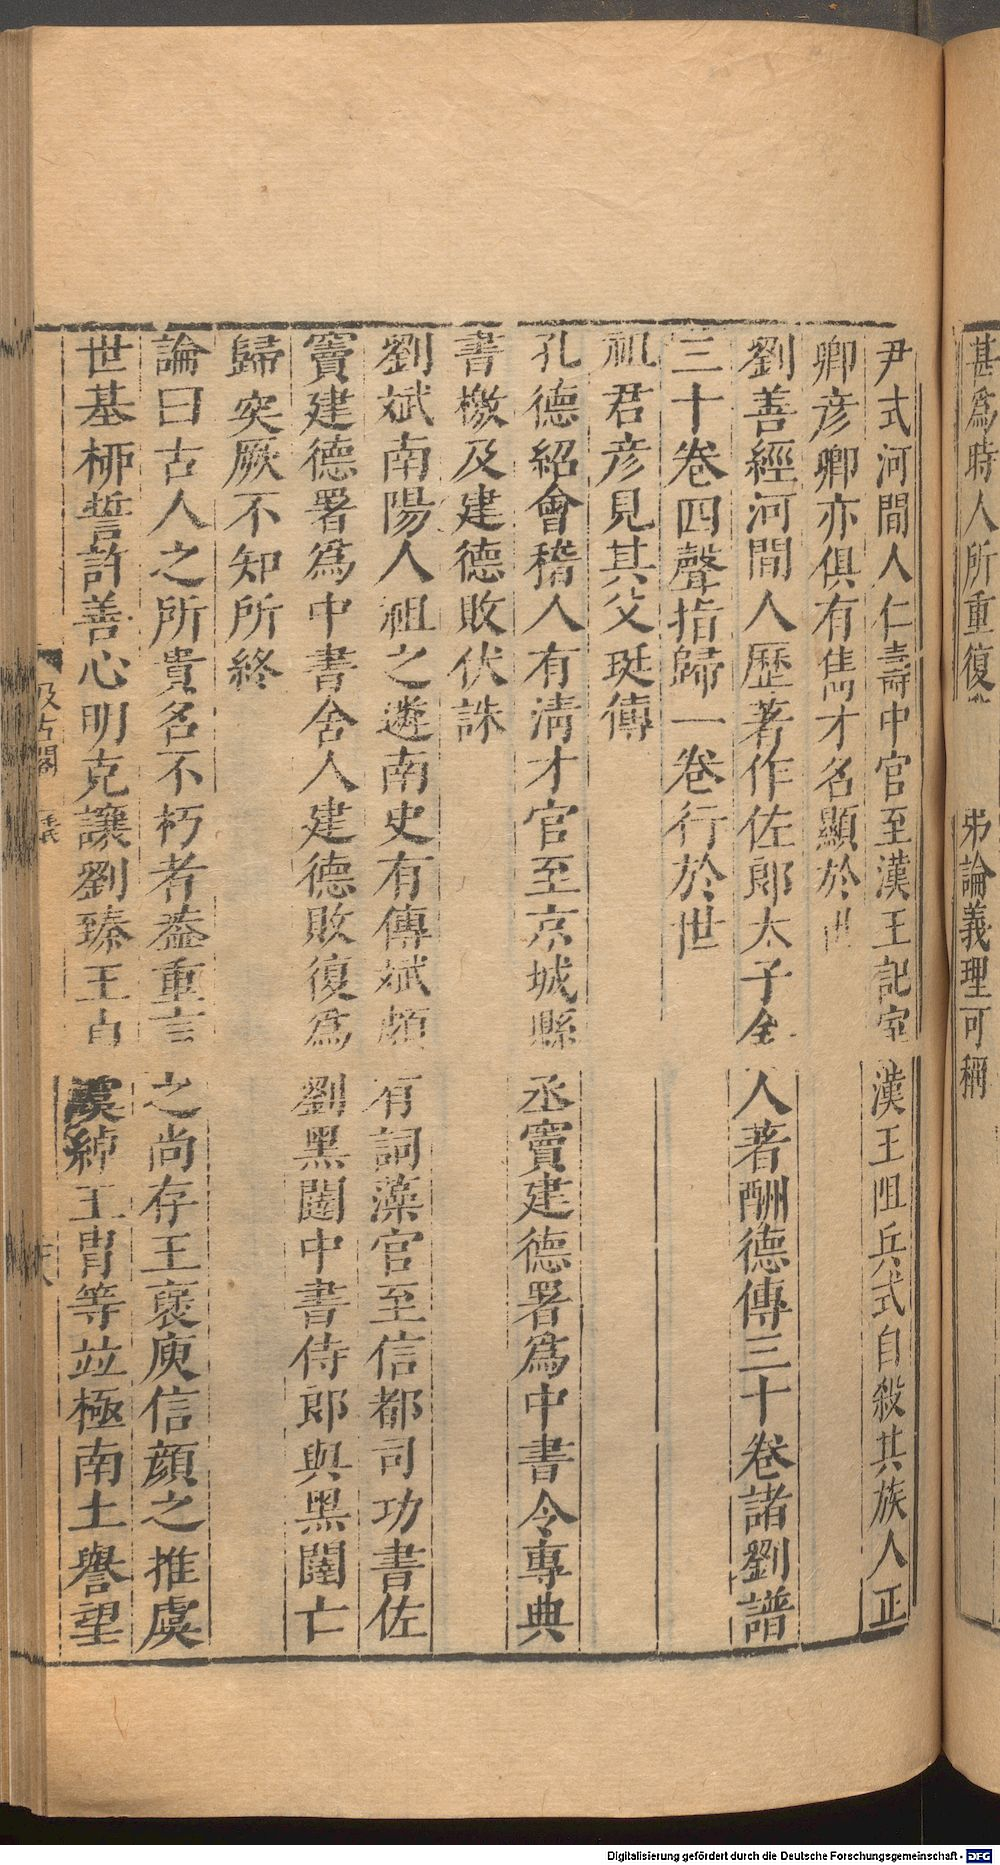 甚爲時人所重復
弟論義理可稱
尹式河間人仁壽中官至漢王記室漢王阻兵式自殺其族人正
卿彦卿亦俱有雋才名顯於世
劉善經河間人歷著作佐郎太子舍人著酬德傳三十卷諸劉譜
三十卷四聲指歸一卷行於世
祖君彦見其父珽傳
孔德紹會稽人有清才官至京城縣丞竇建德署爲中書令專典
書檄及建德敗伏誅
劉斌南陽人祖之遴南史有傳斌頗有詞藻官至信都司功書佐
竇建德署爲中書舍人建德敗復爲劉黑闥中書侍郎與黑闥亡
歸突厥不知所終
論曰古人之所貴名不朽者蓋重言之尚存王裒庾信顔之推虞
世基柳䛒許善心明克讓劉臻王貞虞綽王胄等並極南土譽望
汲古閣
毛氏
Digitalisierung gefördert durch die Deutsche Forschungsgemeinschaft - DFG